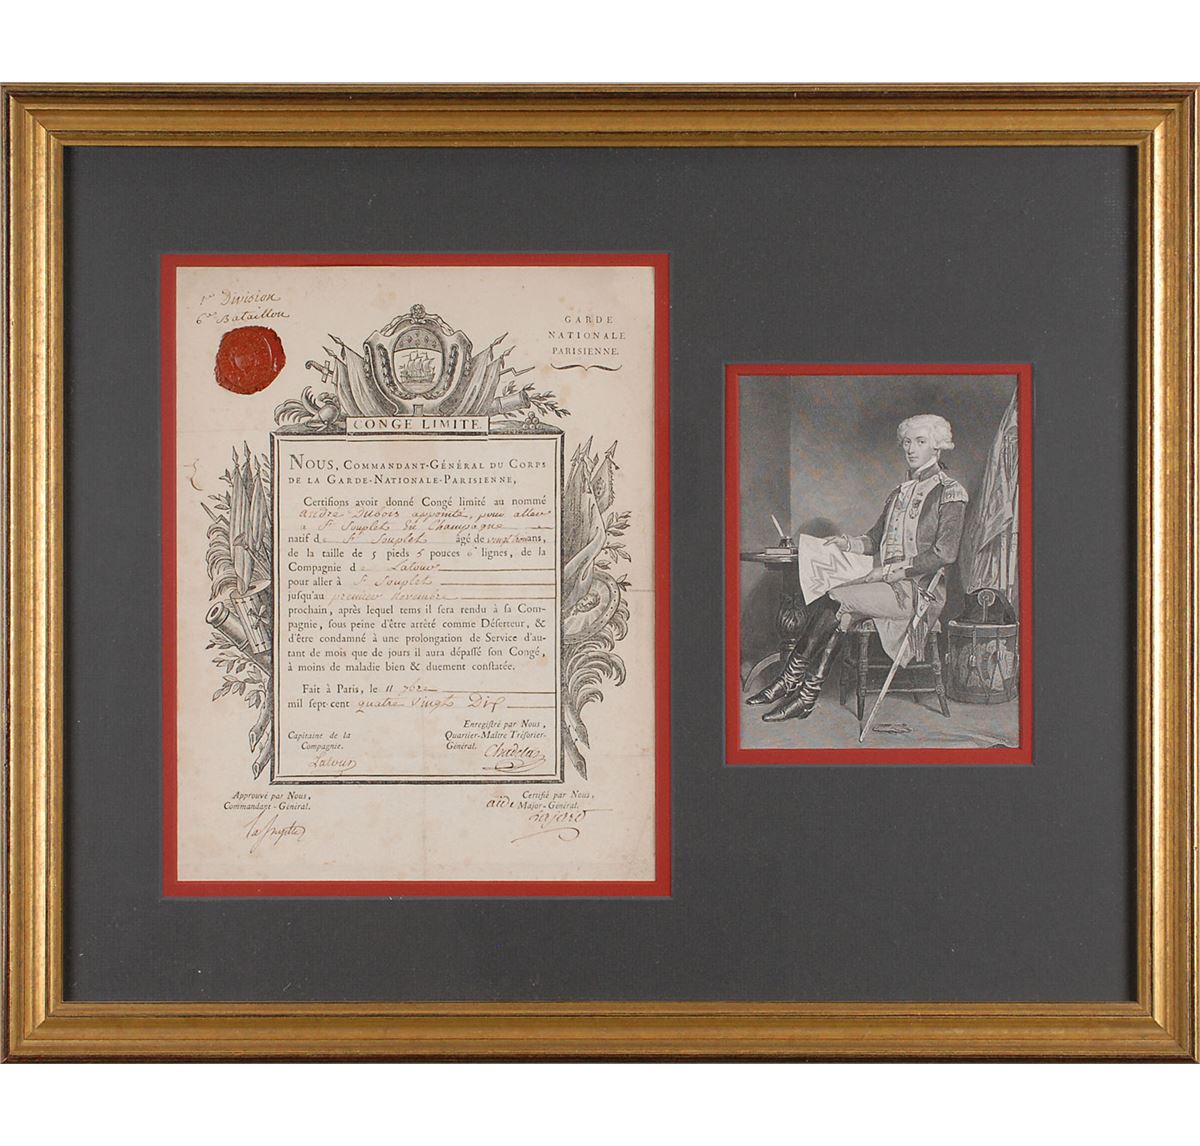 1ere Division
6e Bataillon
GARDE
NATIONALE
PARISIENNE.
CONGE LIMITE.
NOUS, COMMANDANT-GÉNÉRAL DU CORPS
DE LA GARDE-NATIONALE-PARISIENNE,
Certifions avoir donné Congé limité au nommé
andre Dubois appointé, pour aller
a St Souplet En Champagne
natif de St Souplet âgé de vingt trois ans,
de la taille de 5 pieds 5 pouces 6 lignes, de la
Compagnie de Latour
pour aller à St Souplet
jusqu'au premier Novembre
prochain, après lequel tems il sera rendu à sa Com-
pagnie, sous peine d'être arrêté comme Déserteur, &
d'être condamné à une prolongation de Service d'au-
tant de mois que de jours il aura dépassé son Congé,
à moins de maladie bien & duement constatée.
Fait à Paris, le 11 7bre
mil sept-cent quatre vingt Dix
Enregistré par Nous,
Capitaine de la Quartier-Maître Trésorier-
Compagnie. Général.
Latour
Approuvé par Nous, Certifié par Nous,
Commandant-Général. aide Major-Général.
Lafayette